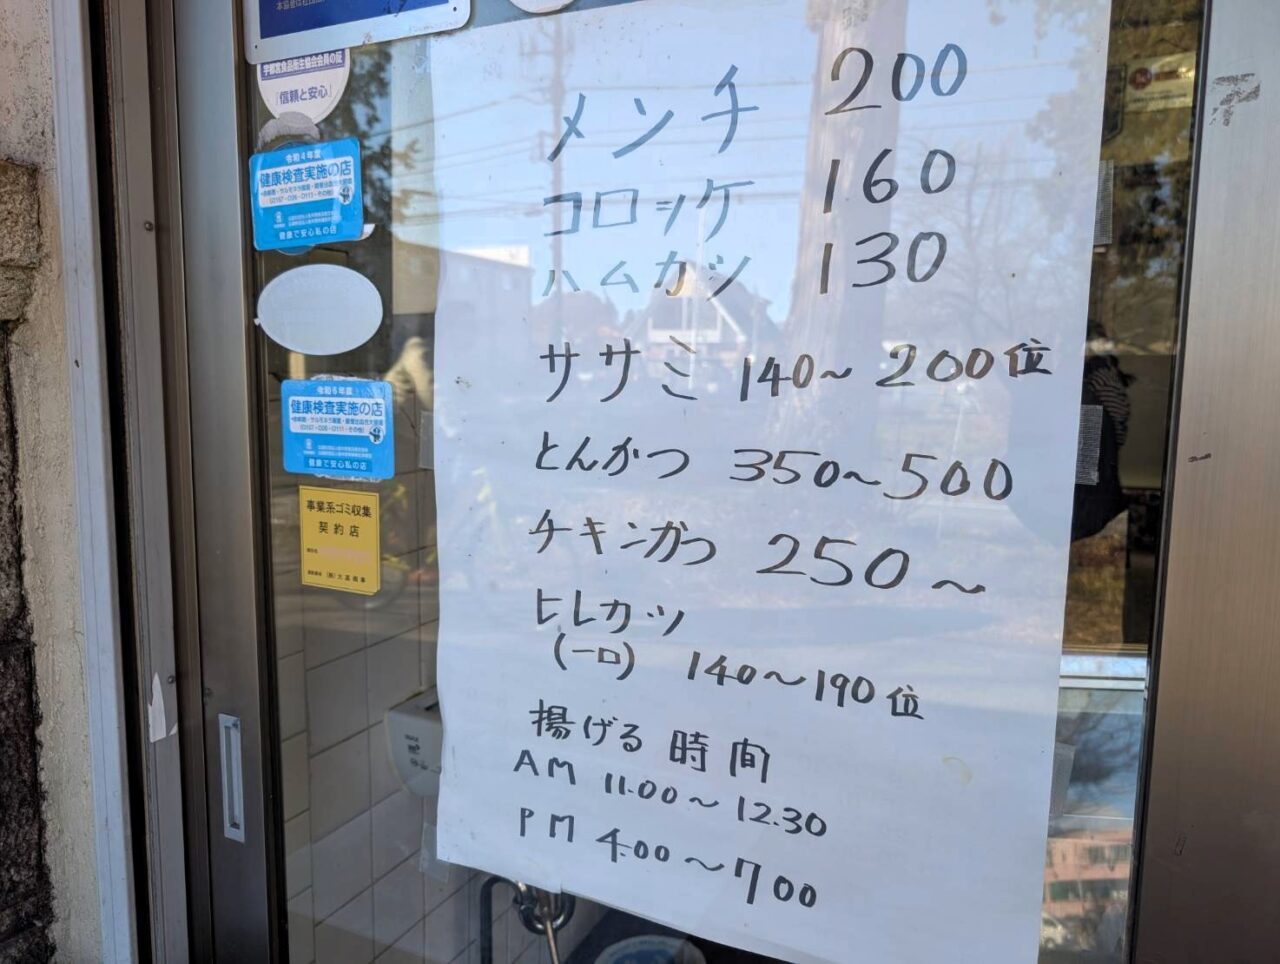 宇都宮食品衛生協会会員の証
「信頼と安心」
令和4年度
健康検査実施の店
健康で安心私の店
令和6年度
健康検査実施の店
健康で安心私の店
事業系ゴミ収集
契約店
メンチ 200
コロッケ 160
ハムカツ 130
ササミ 140～200位
とんかつ 350～500
チキンかつ 250～
ヒレカツ
(一口) 140～190位
揚げる時間
AM 11.00～12.30
PM 4.00～7.00